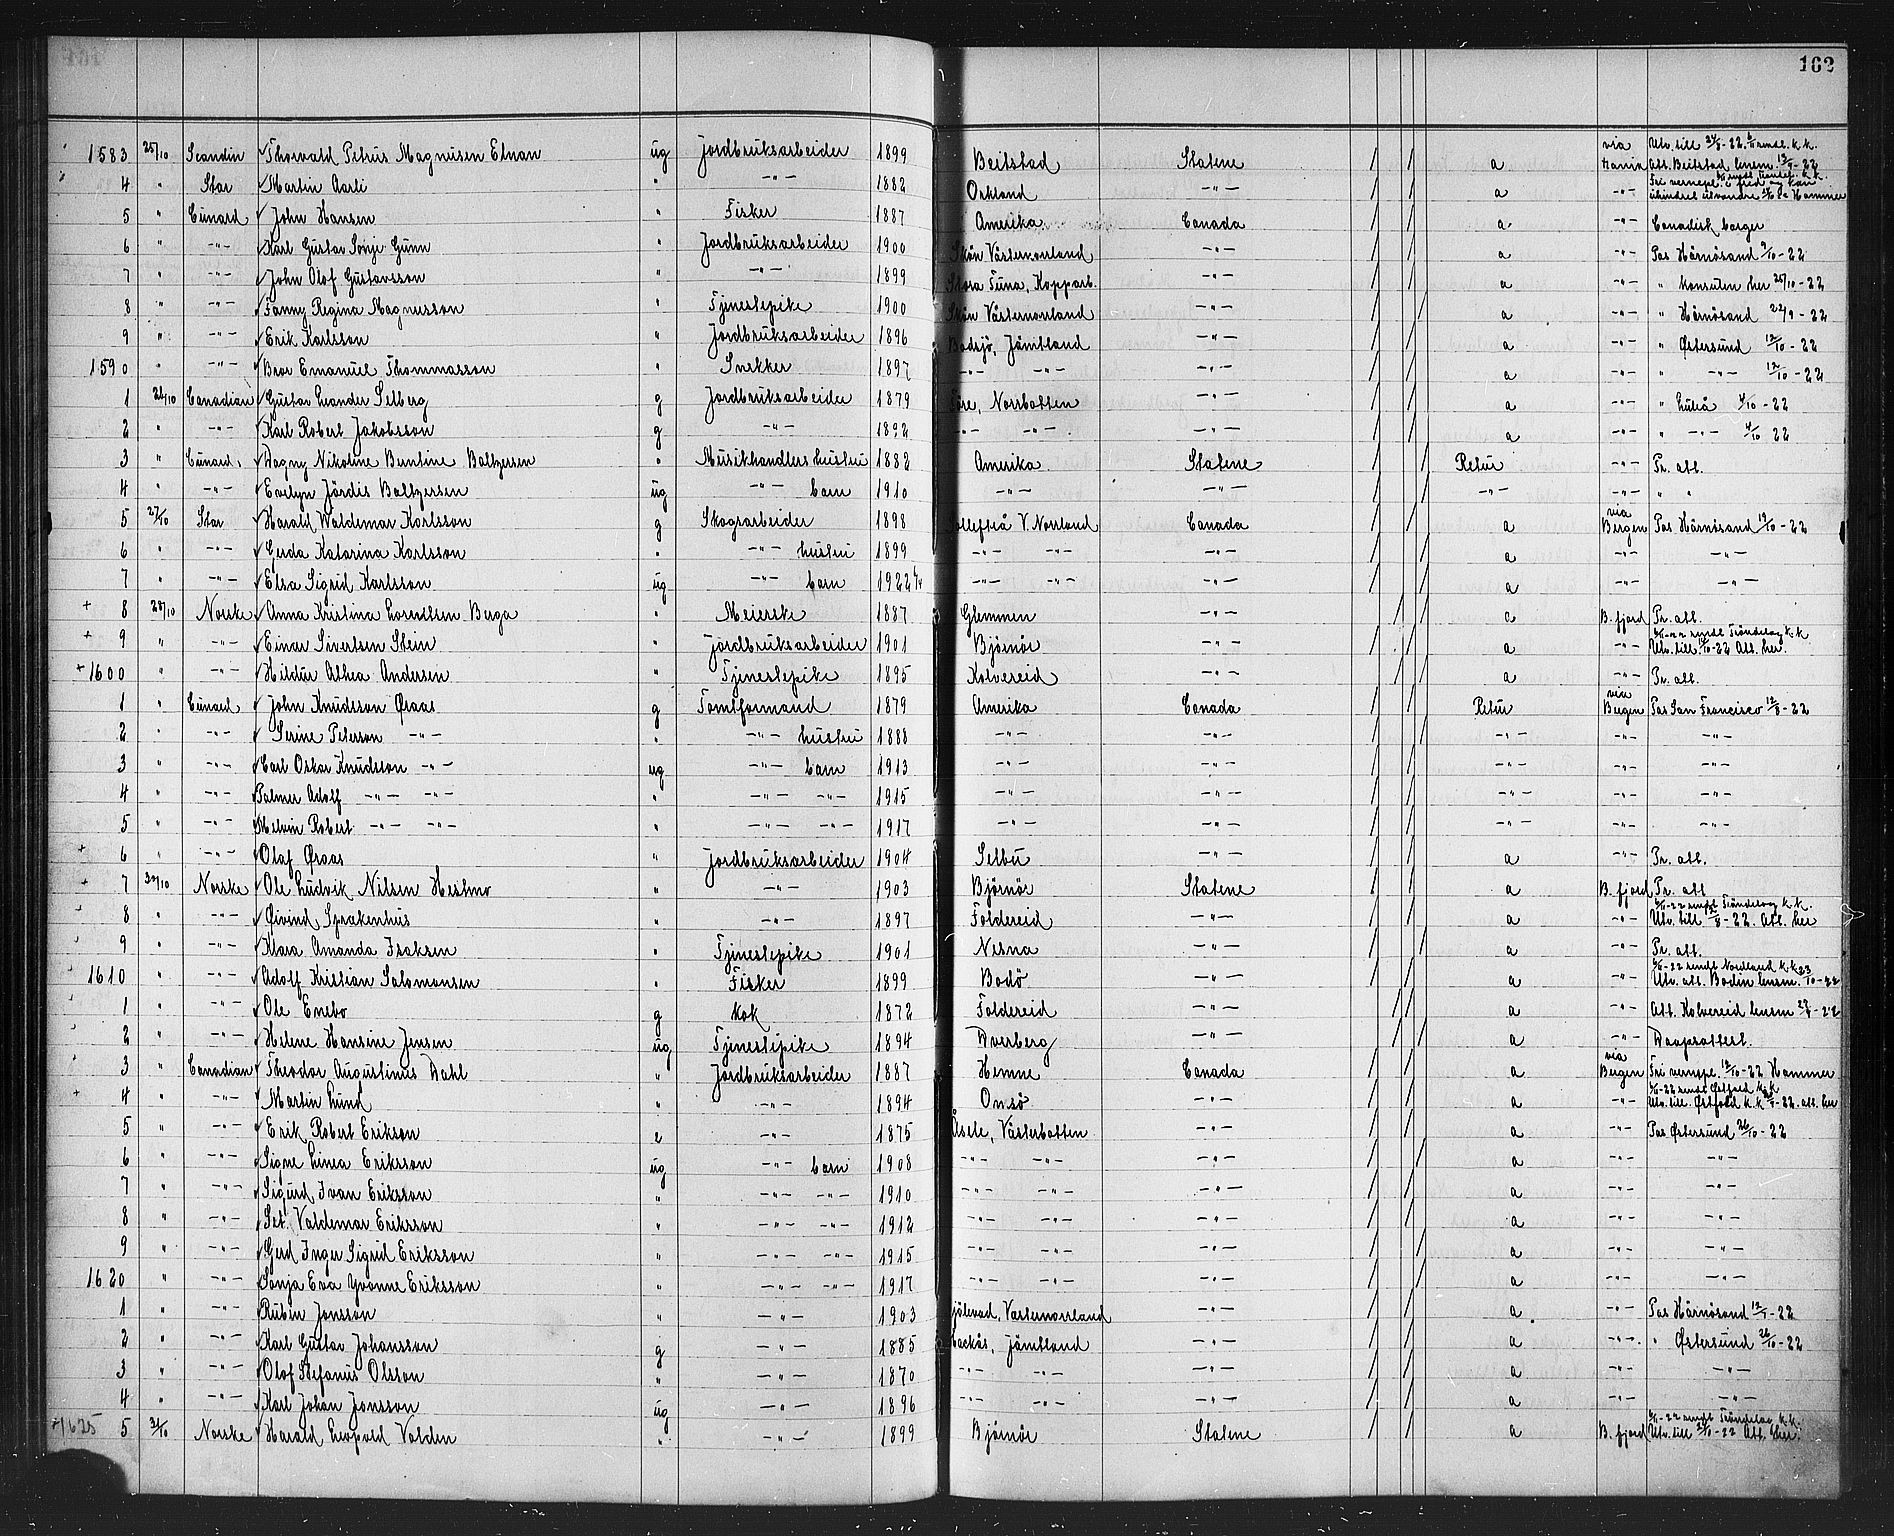 162
1583 25/10 Scandin Thorvald Petrus Magnusen Elnan ug Jordbruksarbeider 1899 Beitstad Statene a via Hania Utv. till 24/8-22. Att. Beitstad lensm. 12/9-22
4 " Star Martin Aarli " -"- 1882 Orkland -"- a -"-
5 " Cunard John Hansen " Fisker 1887 Amerika Canada a -"- Canadisk borger
6 " -"- Karl Gustav Sonje Gunn " Jordbruksarbeider 1900 Skön Västernorrland -"- a -"- Pas Härnösand 9/10-22
7 " -"- John Olof Gustavsson " -"- 1899 Stora Tuna, Kopparb. -"- a -"- " konsulen her 25/10-22
8 " -"- Fanny Regina Magnusson " Tjenestepike 1900 Skön Västernorrland -"- a -"- " Härnösand 22/9-22
9 " -"- Erik Karlsson " Jordbruksarbeider 1896 Bodsjö, Jämtland -"- a -"- " Østersund 12/10-22
1590 " -"- Bror Emanuel Thommasson " Snekker 1897 -"- -"- -"- a -"- " -"- 12/10-22
1 26/10 Canadian Gustav Leander Selberg g Jordbruksarbeider 1879 Töre, Norrbotten -"- a -"- " Luleå 4/10-22
2 " -"- Karl Robert Jakobsson g -"- 1892 -"- -"- -"- a -"- " -"- 4/10 22
3 " Cunard Dagny Nikoline Buntine Baltzersen " Musikhandlers hustru 1882 Amerika Statene Retur -"- Pr. att.
4 " -"- Evelyn Jördis Baltzersen ug -"- barn 1910 -"- -"- -"- -"- " "
5 27/10 Star Harald Waldemar Karlsson g Skogsarbeider 1898 Sollefteå V. Norrland Canada a via Bergen Pas Härnösand 19/10-22
6 " -"- Gerda Katarina Karlsson " -"- hustru 1899 -"- -"- -"- a -"- -"-
7 " -"- Elsa Sigrid Karlsson ug -"- barn 1922 -"- -"- -"- a -"- -"-
+ 8 28/10 Norske Anna Kristina Lorentsen Berga " Meierske 1887 Glemmen -"- a B. fjord Pr. att.
+ 9 " -"- Einar Sivertsen Stein " jordbruksarbeider 1901 Bjørnör -"- a -"- Utv. till. Att. her.
+1600 " -"- Hildur Althea Andersen " Tjenestepike 1895 Kolvereid -"- a -"- Pr. att.
1 " Cunard John Knudsson Øraas g Tomtformand 1879 Amerika Canada Retur via Bergen Pas San Francisco 12/8-22
2 " -"- Serine Peterson -"- " -"- hustru 1888 -"- -"- -"- -"- -"-
3 " -"- Carl Oskar Knudsson -"- ug -"- barn 1913 -"- -"- -"- -"- -"-
4 " -"- Palmer Adolf -"- -"- " -"- -"- 1915 -"- -"- -"- -"- -"-
5 " -"- Melvin Robert -"- -"- " -"- -"- 1917 -"- -"- -"- -"- -"-
+ 6 " -"- Olaf Øraas " jordbruksarbeider 1904 Selbu -"- a -"- Pr. att.
+ 7 30/10 Norske Ole Ludvik Nilsen Hestmo " -"- 1903 Bjørnör Statene a B. fjord Pr. att
8 " -"- Øivind Sprækenhus " -"- 1897 Foldereid -"- a -"- Utv. till 12/8-22. Att. her
9 " -"- Klara Amanda Isaksen " Tjenestepike 1901 Nesna -"- a -"- Pr. att.
1610 " -"- Adolf Kristian Salomonsen " Fisker 1899 Bodö -"- a -"- Utv. att. Bodin lensm. 23/10-22
1 " -"- Ole Enebo g kok 1872 Foldereid -"- a -"- Att. Kolvereid lensm
2 " -"- Helene Hansine Jensen ug Tjenestepike 1894 Dverberg -"- a -"- Daapsattest.
3 " Canadian Theodor Augustinus Dahl " Jordbruksarbeider 1887 Hemne Canada a via Bergen Fri vernepl. 12/10-22 Hammer
+ 4 " -"- Martin Lund " -"- 1894 Onsö -"- a -"- Utv. till. Østfold K.K. att. her
5 " -"- Erik Robert Erikson e -"- 1875 Åsele, Västerbotten -"- a -"- Pas Østersund 26/10-22
6 " -"- Signe Linea Eriksson ug -"- barn 1908 -"- -"- -"- a -"- -"-
7 " -"- Sigurd Ivan Eriksson " -"- -"- 1910 -"- -"- -"- a -"- -"-
8 " -"- Set Valdemar Eriksson " -"- -"- 1912 -"- -"- -"- a -"- -"-
9 " -"- Gerd Inger Sigrid Eriksson " -"- -"- 1915 -"- -"- -"- a -"- -"-
1620 " -"- Sonja Eva Yvonne Eriksson " -"- -"- 1917 -"- -"- -"- a -"- -"-
1 " -"- Ruben Jonsson " -"- 1903 Själevad, Västernorrland -"- a -"- Pas Härnösand
2 " -"- Karl Gustav Johansson g -"- 1885 Backås, Jämtland -"- a -"- " Østersund 26/10-22
3 " -"- Olof Stefanus Olsson " -"- 1870 -"- -"- -"- a -"- -"-
4 " -"- Karl Johan Jonsson ug -"- 1896 -"- -"- -"- a -"- -"-
+1625 5 31/10 Norske Harald Leopold Valdin " -"- 1899 Bjørnör Statene a B. fjord Utv. till Att. her.